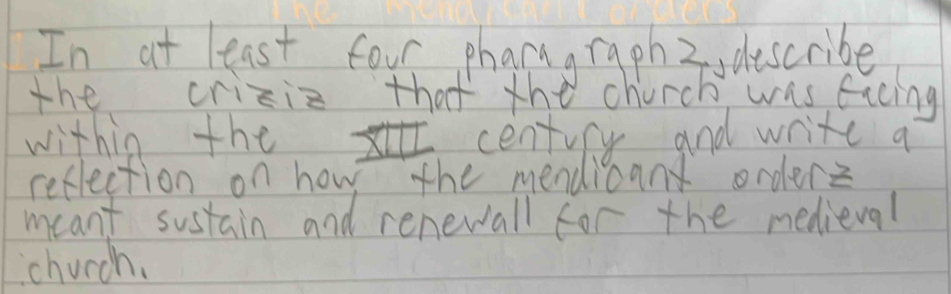 The mendicant orders
1. In at least four pharagraphz, describe
the criziz that the church was facing
within the XIII century and write a
reflection on how the mendicant orderz
meant sustain and renewall for the medieval
church.